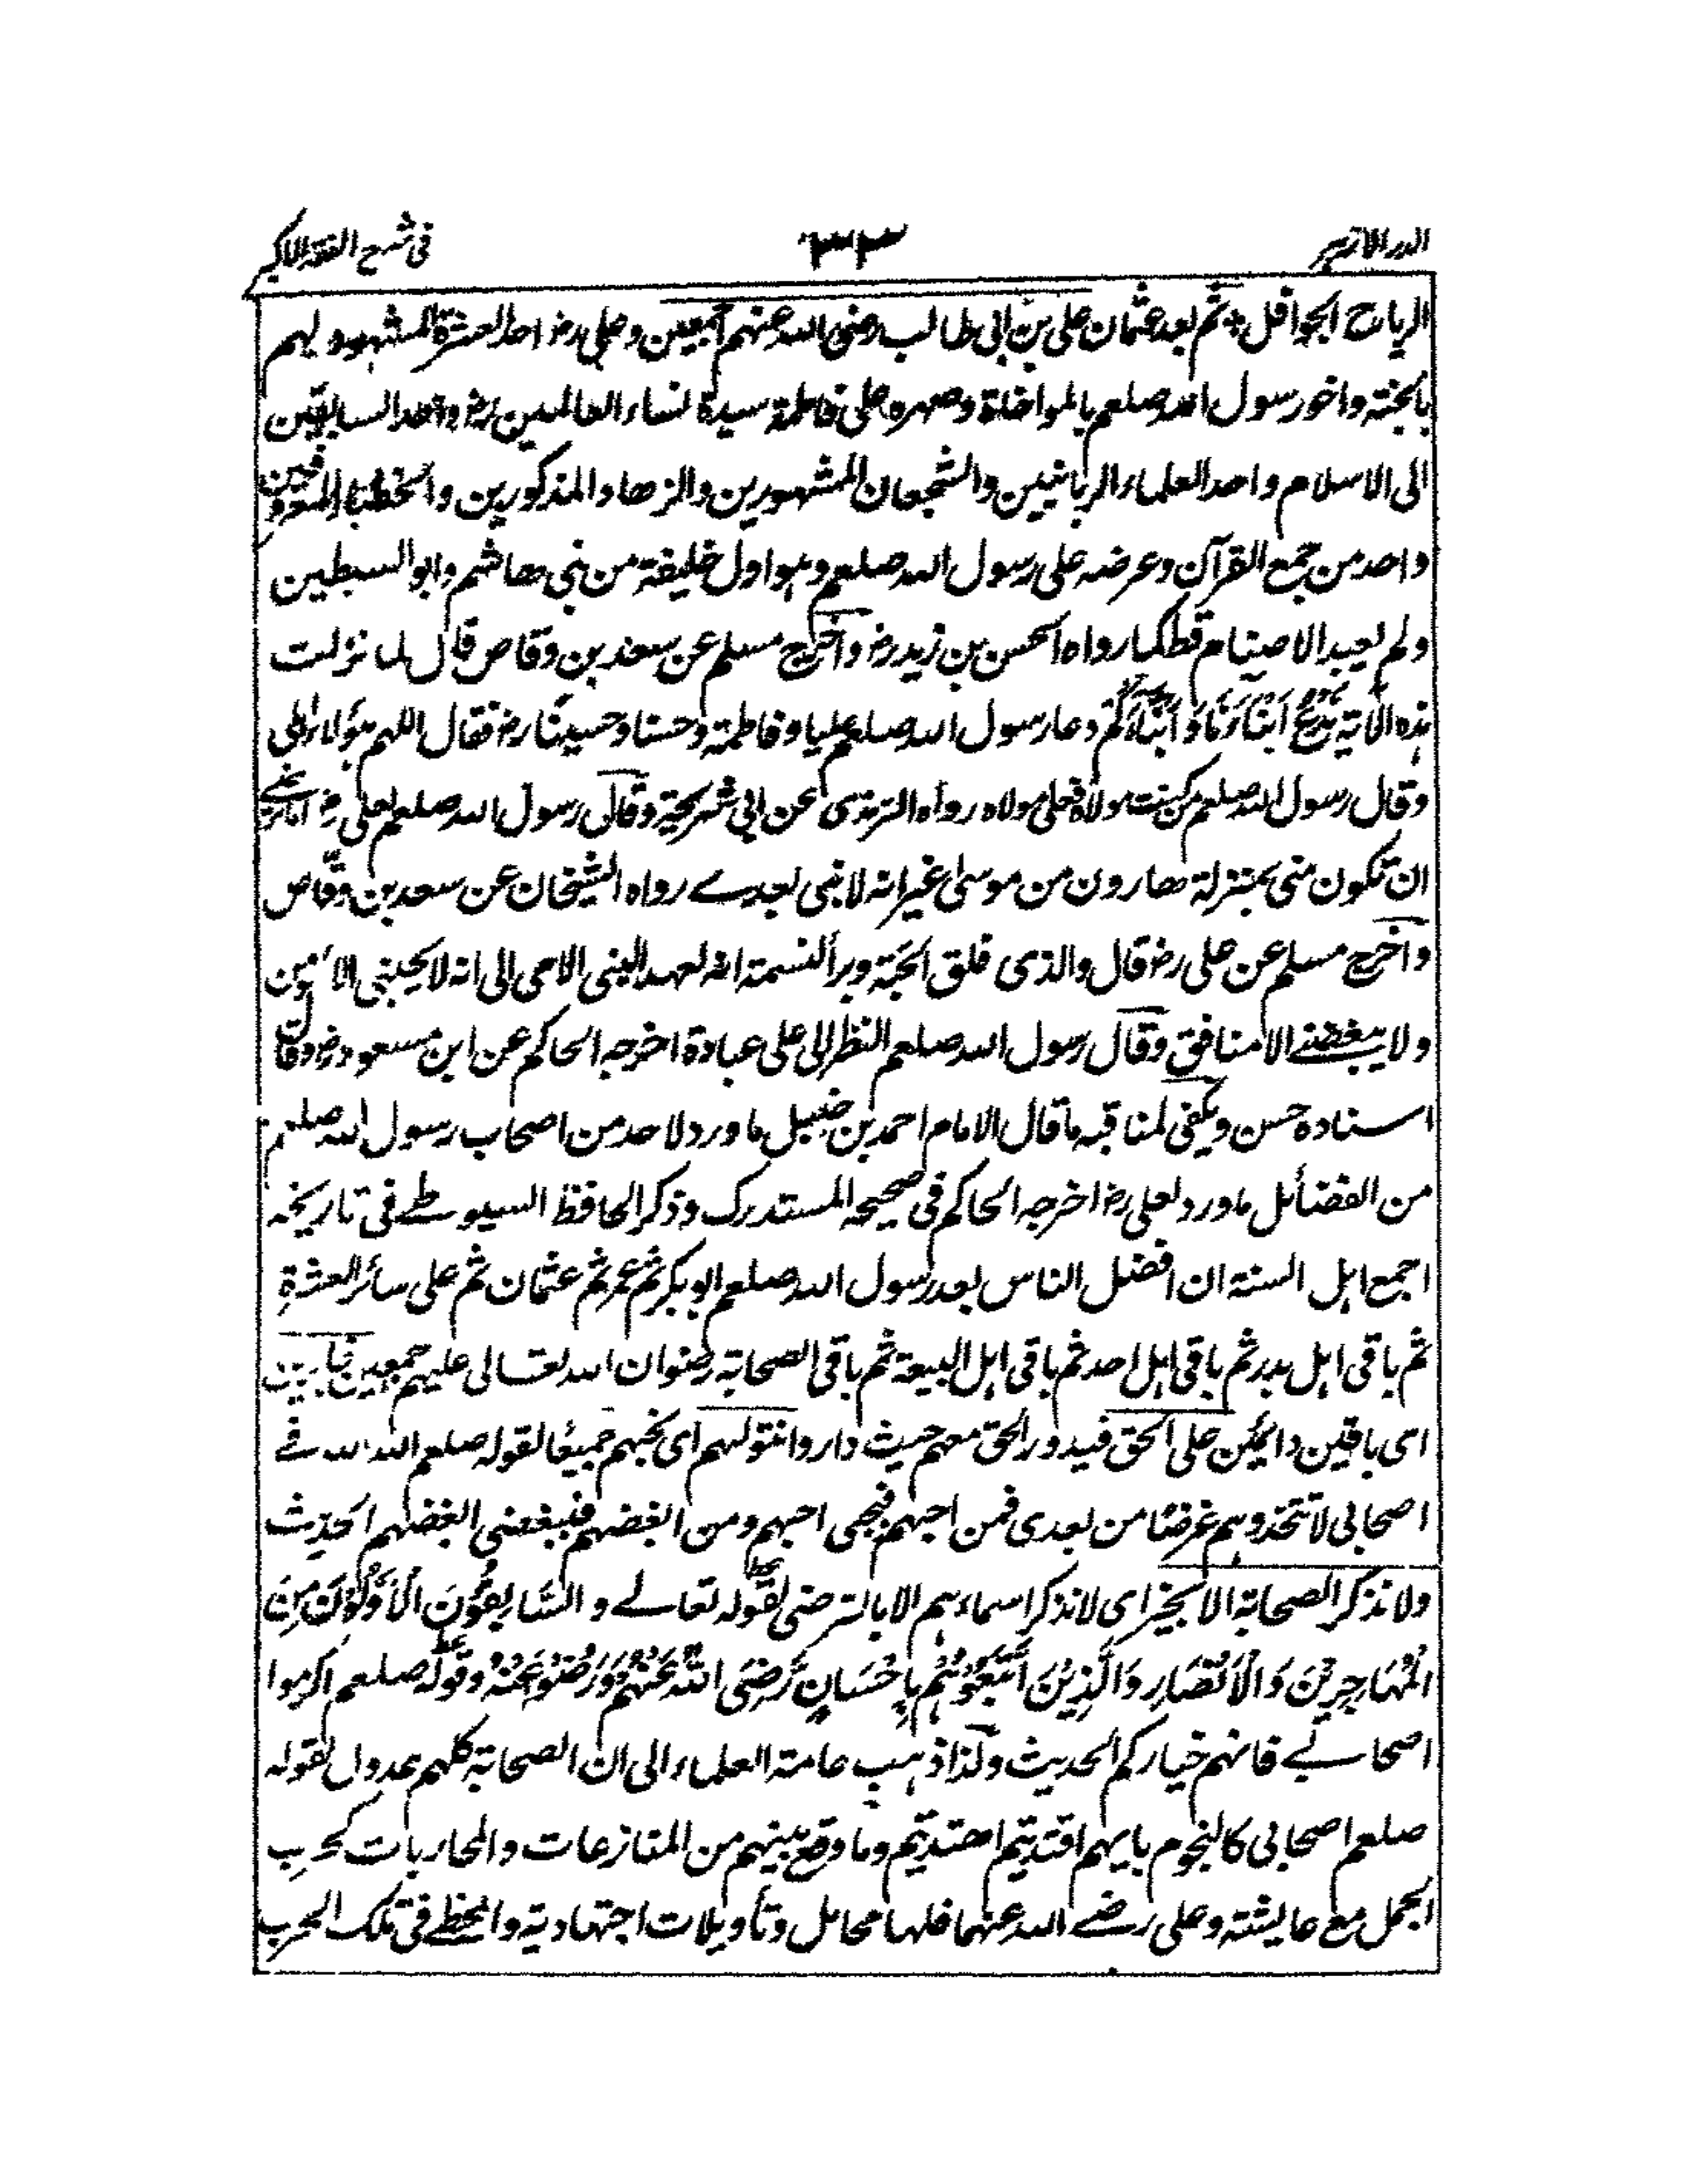 الدر الازہر ٣٣ فی شرح الفقہ الاکبر
الریاح الجوافل ثم بعد عثمان علی بن ابی طالب رضی اللہ عنہم اجمعین وعلی رض احد العشرة المشہود لہم
بالجنتہ واخو رسول اللہ صلعم بالمواخاة وصہرہ علی فاطمة سیدة نساء العالمین رض واحد السابقین
الی الاسلام واحد العلماء الربانیین والشجعان المشہورین والزھاد المذکورین والخطباء المعروفین
واحد من جمع القرآن وعرضہ علی رسول اللہ صلعم وہو اول خلیفة من بنی ھاشم وابو السبطین
ولم یعبد الاصنام قط کما رواہ الحسن بن زید رض واخرج مسلم عن سعد بن وقاص قال لما نزلت
ہذہ الآیة نَدْعُ اَبْنَاءَنَا وَاَبْنَاءَکُمْ دعا رسول اللہ صلعم علیا وفاطمة وحسنا وحسینا رض فقال اللہم ہؤلاء اہلی
وقال رسول اللہ صلعم من کنت مولاہ فعلی مولاہ رواہ الترمذی عن ابی شریحة وقال رسول اللہ صلعم لعلی رض اما ترضی
ان تکون منی بمنزلة ھارون من موسی غیر انہ لا نبی بعدے رواہ الشیخان عن سعد بن وقاص
واخرج مسلم عن علی رض قال والذی فلق الحبة وبرأ النسمة انہ لعہد النبی الامی الی انہ لا یحبنی الا مؤمن
ولا یبغضنے الا منافق وقال رسول اللہ صلعم النظر الی علی عبادة اخرجہ الحاکم عن ابن مسعود رض وقال
اسنادہ حسن ویکفی لمناقبہ ما قال الامام احمد بن حنبل ما ورد لاحد من اصحاب رسول اللہ صلعم
من الفضائل ما ورد لعلی رض اخرجہ الحاکم فی صحیحہ المستدرک وذکر الحافظ السیوطے فی تاریخہ
اجمع اہل السنة ان افضل الناس بعد رسول اللہ صلعم ابو بکر ثم عمر ثم عثمان ثم علی سائر العشرةِ
ثم باقی اہل بدر ثم باقی اہل احد ثم باقی اہل البیعة ثم باقی الصحابة رضوان اللہ تعالی علیہم اجمعین
ای باقین دائمین علی الحق فیدور الحق معہم حیث داروا نتولہم ای نحبہم جمیعًا لقولہ صلعم اللہ اللہ فے
اصحابی لا تتخذوہم غرضًا من بعدی فمن احبہم فبحبی احبہم ومن ابغضہم فببغضی ابغضہم الحدیث
ولا نذکر الصحابة الا بخیر ای لا نذکر اسماءہم الا بالترضی لقولہ تعالے وَالسَّابِقُوْنَ الْاَوَّلُوْنَ مِنَ
الْمُہَاجِرِیْنَ وَالْاَنْصَارِ وَالَّذِیْنَ اتَّبَعُوْہُمْ بِاِحْسَانٍ رَّضِیَ اللّٰہُ عَنْہُمْ وَرَضُوْا عَنْہُ وقولہ صلعم اکرموا
اصحابے فانہم خیارکم الحدیث ولذا ذہب عامة العلماء الی ان الصحابة کلہم عدول لقولہ
صلعم اصحابی کالنجوم بایہم اقتدیتم اھتدیتم وما وقع بینہم من المنازعات والمحاربات کحرب
الجمل مع عایشة وعلی رضے اللہ عنہما فلہا محامل وتأویلات اجتہادیة والمخطے فی تلک الحرب